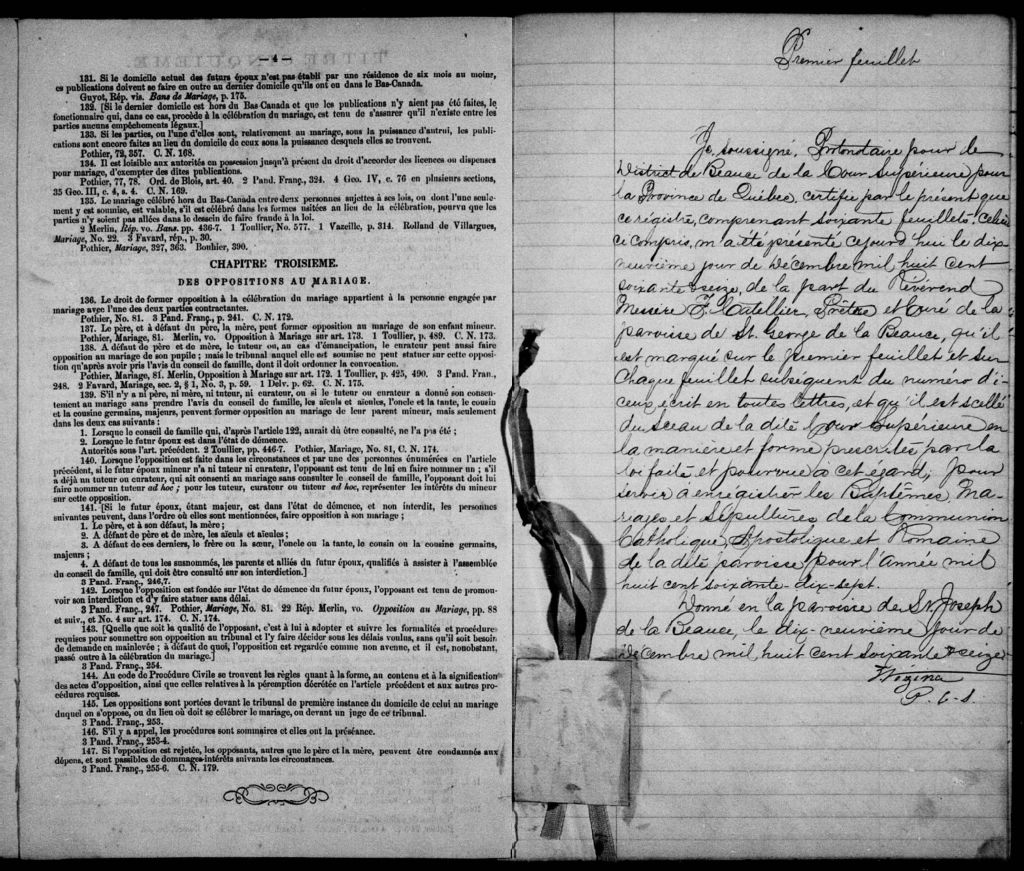 — 4 —
131. Si le domicile actuel des futurs époux n'est pas établi par une résidence de six mois au moins,
es publications doivent se faire en outre au dernier domicile qu'ils ont eu dans le Bas-Canada.
Guyot, Rép. vis. Bans de Mariage, p. 175.
132. [Si le dernier domicile est hors du Bas-Canada et que les publications n'y aient pas été faites, le
fonctionnaire qui, dans ce cas, procède à la célébration du mariage, est tenu de s'assurer qu'il n'existe entre les
parties aucuns empêchements légaux.]
133. Si les parties, ou l'une d'elles sont, relativement au mariage, sous la puissance d'autrui, les publi-
cations sont encore faites au lieu du domicile de ceux sous la puissance desquels elles se trouvent.
Pothier, 72, 357. C. N. 168.
134. Il est loisible aux autorités en possession jusqu'à présent du droit d'accorder des licences ou dispenses
pour mariage, d'exempter des dites publications.
Pothier, 77, 78. Ord. de Blois, art. 40. 2 Pand. Franç., 324. 4 Geo. IV, c. 76 en plusieurs sections,
35 Geo. III, c. 4, s. 4. C. N. 169.
135. Le mariage célébré hors du Bas-Canada entre deux personnes sujettes à ses lois, ou dont l'une seule-
ment y est soumise, est valable, s'il est célébré dans les formes usitées au lieu de la célébration, pourvu que les
parties n'y soient pas allées dans le dessein de faire fraude à la loi.
2 Merlin, Rép. vo. Bans. pp. 436-7. 1 Toullier, No. 577. 1 Vazeille, p. 314. Rolland de Villargues,
Mariage, No. 22. 3 Favard, rép., p. 30.
Pothier, Mariage, 327, 363. Bouhier, 390.
CHAPITRE TROISIEME.
DES OPPOSITIONS AU MARIAGE.
136. Le droit de former opposition à la célébration du mariage appartient à la personne engagée par
mariage avec l'une des deux parties contractantes.
Pothier, No. 81. 3 Pand. Franç., p. 241. C. N. 172.
137. Le père, et à défaut du père, la mère, peut former opposition au mariage de son enfant mineur.
Pothier, Mariage, 81. Merlin, vo. Opposition à Mariage sur art. 173. 1 Toullier, p. 489. C. N. 173.
138. A défaut de père et de mère, le tuteur ou, au cas d'émancipation, le curateur peut aussi faire
opposition au mariage de son pupille; mais le tribunal auquel elle est soumise ne peut statuer sur cette opposi-
tion qu'après avoir pris l'avis du conseil de famille, dont il doit ordonner la convocation.
Pothier, Mariage, 81. Merlin, Opposition à Mariage sur art. 172. 1 Toullier, p. 425, 490. 3 Pand. Fran.,
248. 2 Favard, Mariage, sec. 2, § 1, No. 3, p. 59. 1 Delv. p. 62. C. N. 175.
139. S'il n'y a ni père, ni mère, ni tuteur, ni curateur, ou si le tuteur ou curateur a donné son consen-
tement au mariage sans prendre l'avis du conseil de famille, les aïeuls et aïeules, l'oncle et la tante, le cousin
et la cousine germains, majeurs, peuvent former opposition au mariage de leur parent mineur, mais seulement
dans les deux cas suivants:
1. Lorsque le conseil de famille qui, d'après l'article 122, aurait dû être consulté, ne l'a pas été;
2. Lorsque le futur époux est dans l'état de démence.
Autorités sous l'art. précédent. 2 Toullier, pp. 446-7. Pothier, Mariage, No. 81, C. N. 174.
140. Lorsque l'opposition est faite dans les circonstances et par une des personnes énumérées en l'article
précédent, si le futur époux mineur n'a ni tuteur ni curateur, l'opposant est tenu de lui en faire nommer un; s'il
a déjà un tuteur ou curateur, qui ait consenti au mariage sans consulter le conseil de famille, l'opposant doit lui
faire nommer un tuteur ad hoc; pour les tuteur, curateur ou tuteur ad hoc, représenter les intérêts du mineur
sur cette opposition.
141. [Si le futur époux, étant majeur, est dans l'état de démence, et non interdit, les personnes
suivantes peuvent, dans l'ordre où elles sont mentionnées, faire opposition à son mariage;
1. Le père, et à son défaut, la mère;
2. A défaut de père et de mère, les aïeuls et aïeules;
3. A défaut de ces derniers, le frère ou la sœur, l'oncle ou la tante, le cousin ou la cousine germains,
majeurs;
4. A défaut de tous les susnommés, les parents et alliés du futur époux, qualifiés à assister à l'assemblée
du conseil de famille, qui doit être consulté sur son interdiction.]
3 Pand. Franç., 246,7.
142. Lorsque l'opposition est fondée sur l'état de démence du futur époux, l'opposant est tenu de promou-
voir son interdiction et d'y faire statuer sans délai.
3 Pand. Franç., 247. Pothier, Mariage, No. 81. 22 Rép. Merlin, vo. Opposition au Mariage, pp. 88
et suiv., et No. 4 sur art. 174. C. N. 174.
143. [Quelle que soit la qualité de l'opposant, c'est à lui à adopter et suivre les formalités et procédure
requises pour soumettre son opposition au tribunal et l'y faire décider sous les délais voulus, sans qu'il soit besoin
de demande en mainlevée; à défaut de quoi, l'opposition est regardée comme non avenue, et il est, nonobstant,
passé outre à la célébration du mariage.]
3 Pand. Franç., 254.
144. Au code de Procédure Civile se trouvent les règles quant à la forme, au contenu et à la signification
des actes d'opposition, ainsi que celles relatives à la péremption décrétée en l'article précédent et aux autres pro-
cédures requises.
145. Les oppositions sont portées devant le tribunal de première instance du domicile de celui au mariage
duquel on s'oppose, ou du lieu où doit se célébrer le mariage, ou devant un juge de ce tribunal.
3 Pand. Franç., 253.
146. S'il y a appel, les procédures sont sommaires et elles ont la préséance.
3 Pand. Franç., 253-4.
147. Si l'opposition est rejetée, les opposants, autres que le père et la mère, peuvent être condamnés aux
dépens, et sont passibles de dommages-intérêts suivants les circonstances.
3 Pand. Franç., 255-6. C. N. 179.
Premier feuillet
Je, soussigné, Protonotaire pour le
District de Beauce de la Cour Supérieure pour
la Province de Québec, certifie par le présent que
ce régistre, comprenant soixante feuillets celui
ci compris, m'a été présenté cejourd'hui le dix
neuvième jour de Décembre mil huit cent
soixante & seize, de la part du Révérend
Messire F. Catellier, Prêtre et Curé de la
paroisse de St. George de la Beauce, qu'il
est marqué sur le premier feuillet et sur
chaque feuillet subséquent du numéro d'i-
ceux écrit en toutes lettres, et qu'il est scellé
du sceau de la dite Cour Supérieure en
la manière et forme prescrites par la
loi faite et pourvue à cet égard, pour
servir à enrégistrer les Baptêmes, Ma-
riages et Sépultures de la Communion
Catholique, Apostolique et Romaine
de la dite paroisse pour l'Année mil
huit cent soixante-dix-sept.
Donné en la paroisse de St. Joseph
de la Beauce, le dix-neuvième jour de
Décembre mil huit cent soixante & seize
P. C. S.